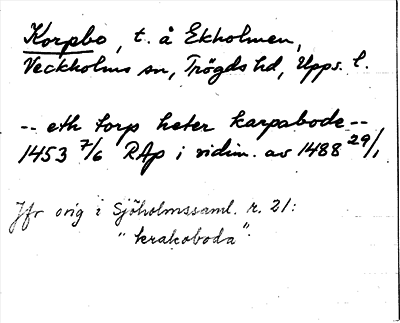 Korpbo, t. å Ekholmen,
Veckholms sn, Trögds hd, Upps. l.
-- eth torp heter karpabode --
1453 7/6 RAp i vidim. av 1488 29/1
Jfr orig i Sjöholmssaml. r. 21:
"krakoboda"